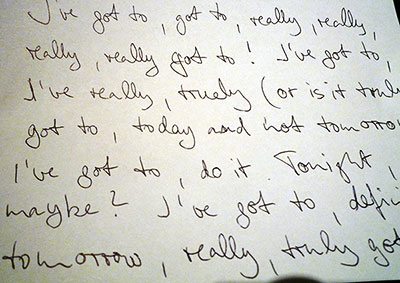 I've got to, got to, really, really,
really, really got to! I've got to,
I've really, truely (or is it truly
got to, today and not tomorrow
I've got to, do it. Tonight,
maybe? I've got to, defini
tomorrow, really, truly got